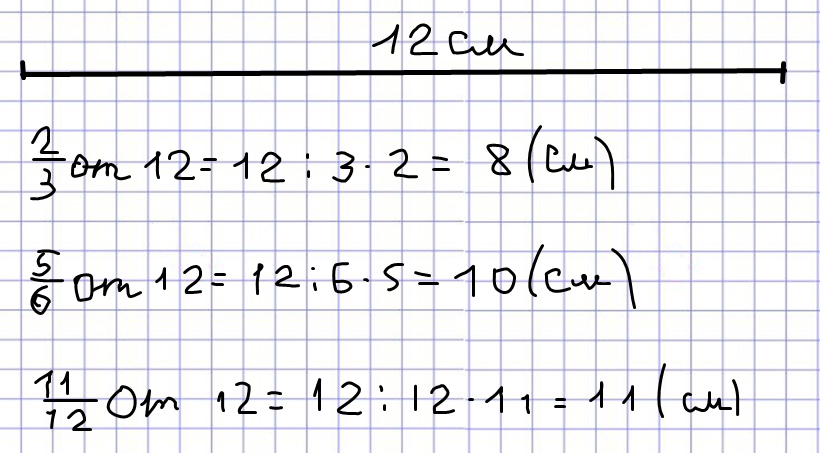 12 см
2/3 от 12 = 12 : 3 · 2 = 8 (см)
5/6 от 12 = 12 : 6 · 5 = 10 (см)
11/12 от 12 = 12 : 12 · 11 = 11 (см)